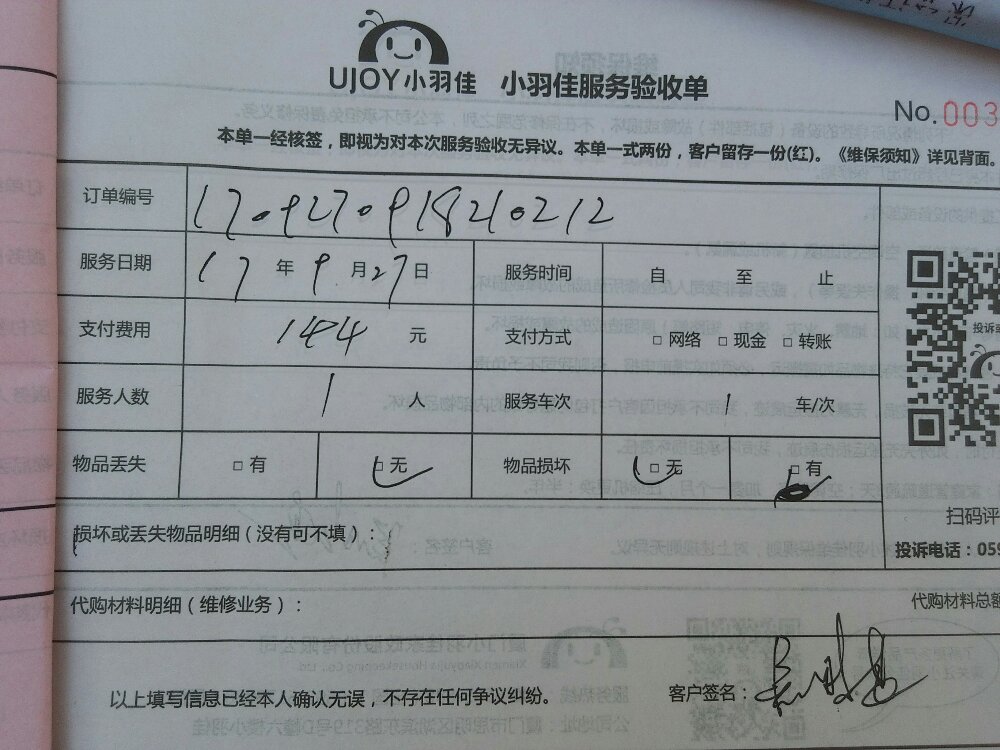 UJOY小羽佳 小羽佳服务验收单
No.003
本单一经核签，即视为对本次服务验收无异议。本单一式两份，客户留存一份(红)。《维保须知》详见背面。
订单编号 1709270918210212
服务日期 17 年 9 月 27 日 服务时间 自 至 止
支付费用 144 元 支付方式 □ 网络 □ 现金 □ 转账
服务人数 1 人 服务车次 1 车/次
物品丢失 □ 有 □ 无 物品损坏 □ 无 □ 有
投诉
扫码评
损坏或丢失物品明细（没有可不填）：
投诉电话：059
代购材料明细（维修业务）： 代购材料总额
以上填写信息已经本人确认无误，不存在任何争议纠纷。 客户签名：